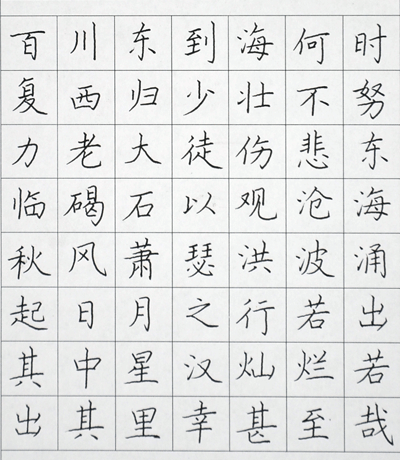 百川东到海何时
复西归少壮不努
力老大徒伤悲东
临碣石以观沧海
秋风萧瑟洪波涌
起日月之行若出
其中星汉灿烂若
出其里幸甚至哉